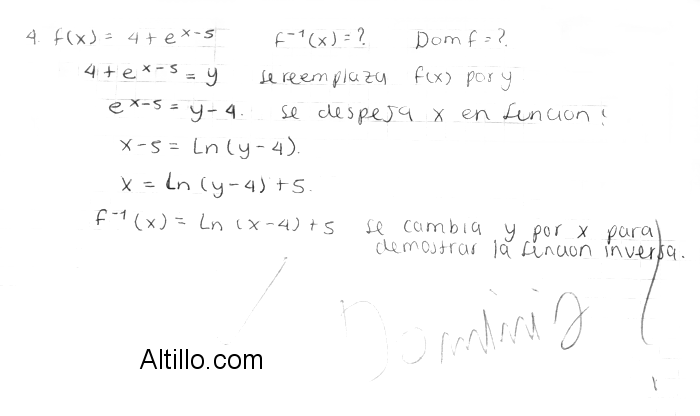 4. f(x) = 4 + e^x-5 f^-1(x) = ? Dom f = ?.
4 + e^x-5 = y se reemplaza f(x) por y
e^x-5 = y - 4. se despeja x en funcion:
x - 5 = Ln (y - 4).
x = Ln (y - 4) + 5.
f^-1 (x) = Ln (x - 4) + 5 se cambia y por x para
demostrar la funcion inversa.
Dominio
Altillo.com